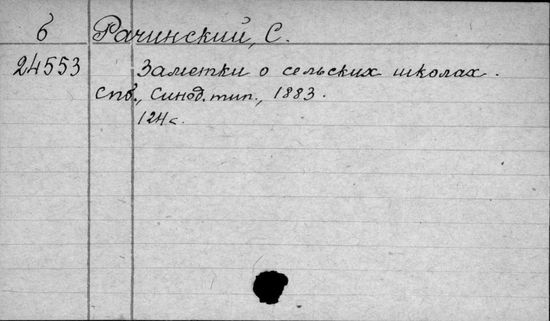 б Рачинский, С.
24553 Заметки о сельских школах.
Спб., Синод. тип., 1883.
124 с.